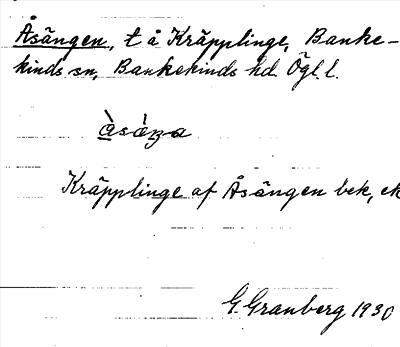 Åsängen, t å Kräpplinge, Banke-
kinds sn, Bankekinds hd. Ögl l.
Kräpplinge af Åsängen bek, ek
G. Granberg 1930